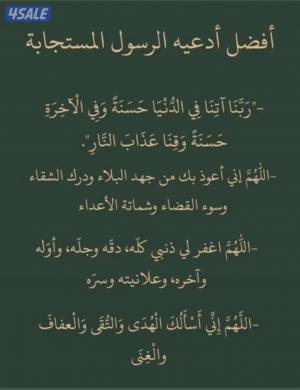 4SALE
أفضل أدعيه الرسول المستجابة
-"رَبَّنَا آتِنَا فِي الدُّنْيَا حَسَنَةً وَفِي الْآخِرَةِ
حَسَنَةً وَقِنَا عَذَابَ النَّارِ".
-اللَّهُمَّ إني أعوذ بك من جهد البلاء ودرك الشقاء
وسوء القضاء وشماتة الأعداء
-اللَّهُمَّ اغفر لي ذنبي كلّه، دقّه وجلّه، وأوّله
وآخره، وعلانيته وسرّه
-اللَّهُمَّ إنِّي أَسْأَلُكَ الْهُدَى وَالتُّقَى وَالْعفافَ
والْغِنَى